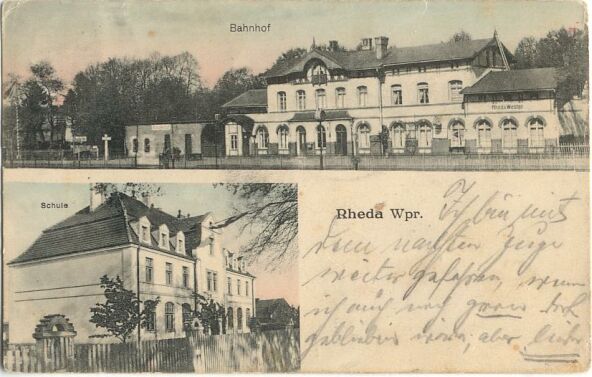 Bahnhof
Rheda Westpr.
Schule
Rheda Wpr.
Ich bin mit
dem nächsten Zuge
weiter gefahren, wenn
ich auch noch gern dort
geblieben wäre, aber leider